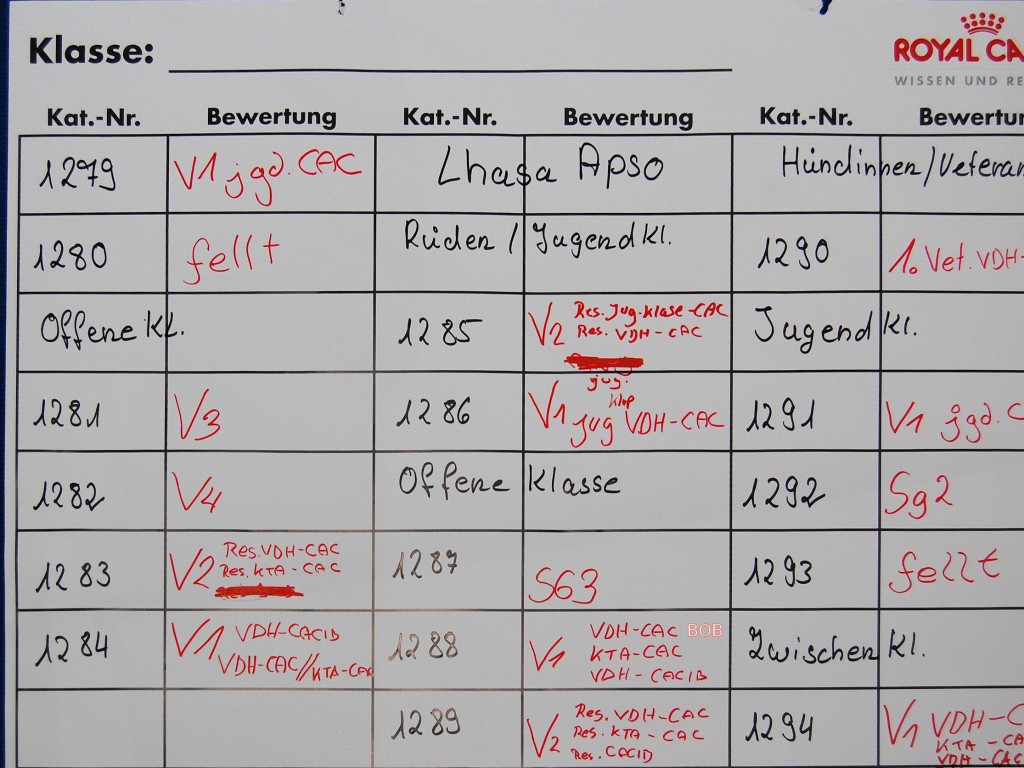 Klasse:
ROYAL CA
WISSEN UND RE
Kat.-Nr. Bewertung Kat.-Nr. Bewertung Kat.-Nr. Bewertun
1279 V1 jgd. CAC
1280 fellt
Offene Kl.
1281 V3
1282 V4
1283 V2 Res. VDH-CAC
Res. KTA-CAC
1284 V1 VDH-CACIB
VDH-CAC//KTA-CAC
Lhasa Apso
Rüden / Jugend Kl.
1285 V2 Res. Jug. Klase-CAC
Res. VDH-CAC
jug.
1286 V1 jug VDH-CAC
Offene Klasse
1287 SG3
1288 V1 VDH-CAC BOB
KTA-CAC
VDH-CACIB
1289 V2 Res. VDH-CAC
Res. KTA-CAC
Res. CACIB
Hündinnen/Veteran
1290 1. Vet. VDH-
Jugend Kl.
1291 V1 jgd. C
1292 Sg2
1293 fellt
Zwischen Kl.
1294 V1 VDH-C
KTA-CA
VDH-CAC